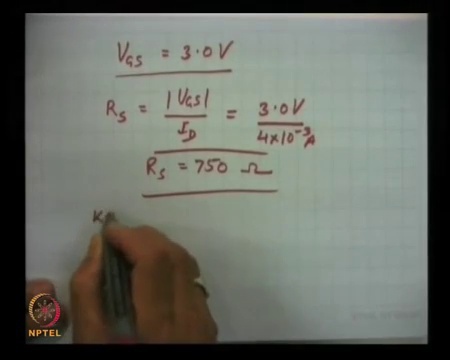 V_GS = 3.0 V
R_S = |V_GS| / I_D = 3.0 V / 4×10^-3 A
R_S = 750 Ω
NPTEL